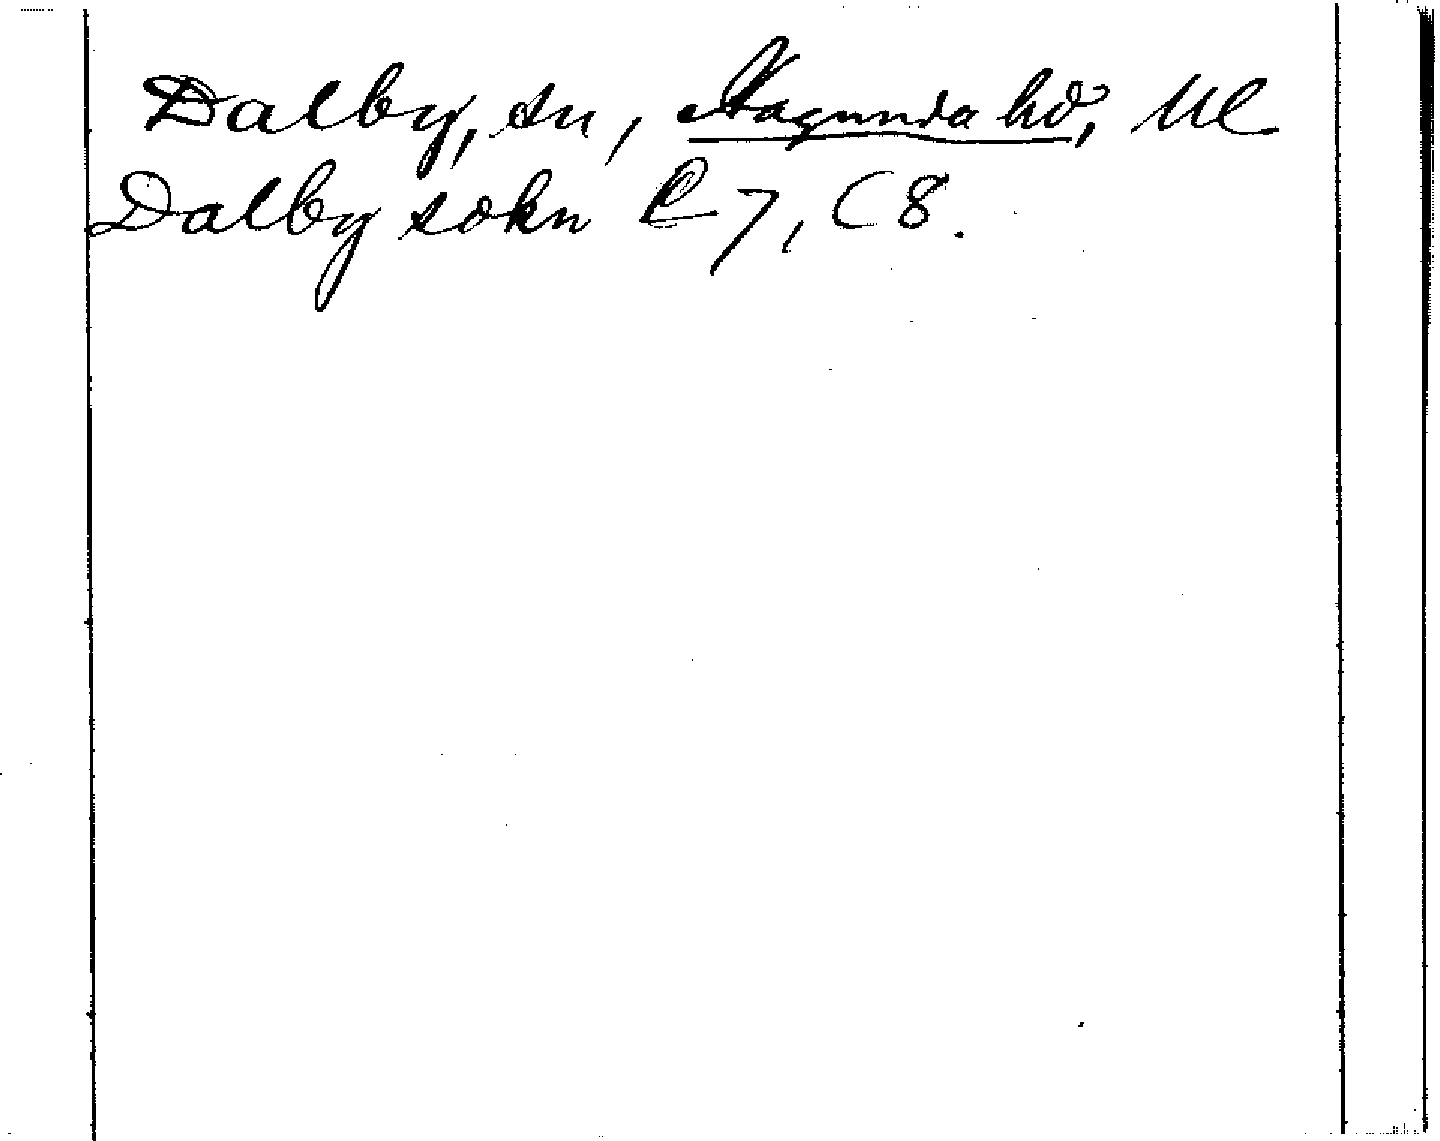 Dalby, sn, Hagunda hd, Ul
Dalby sokn R 7, C 8.